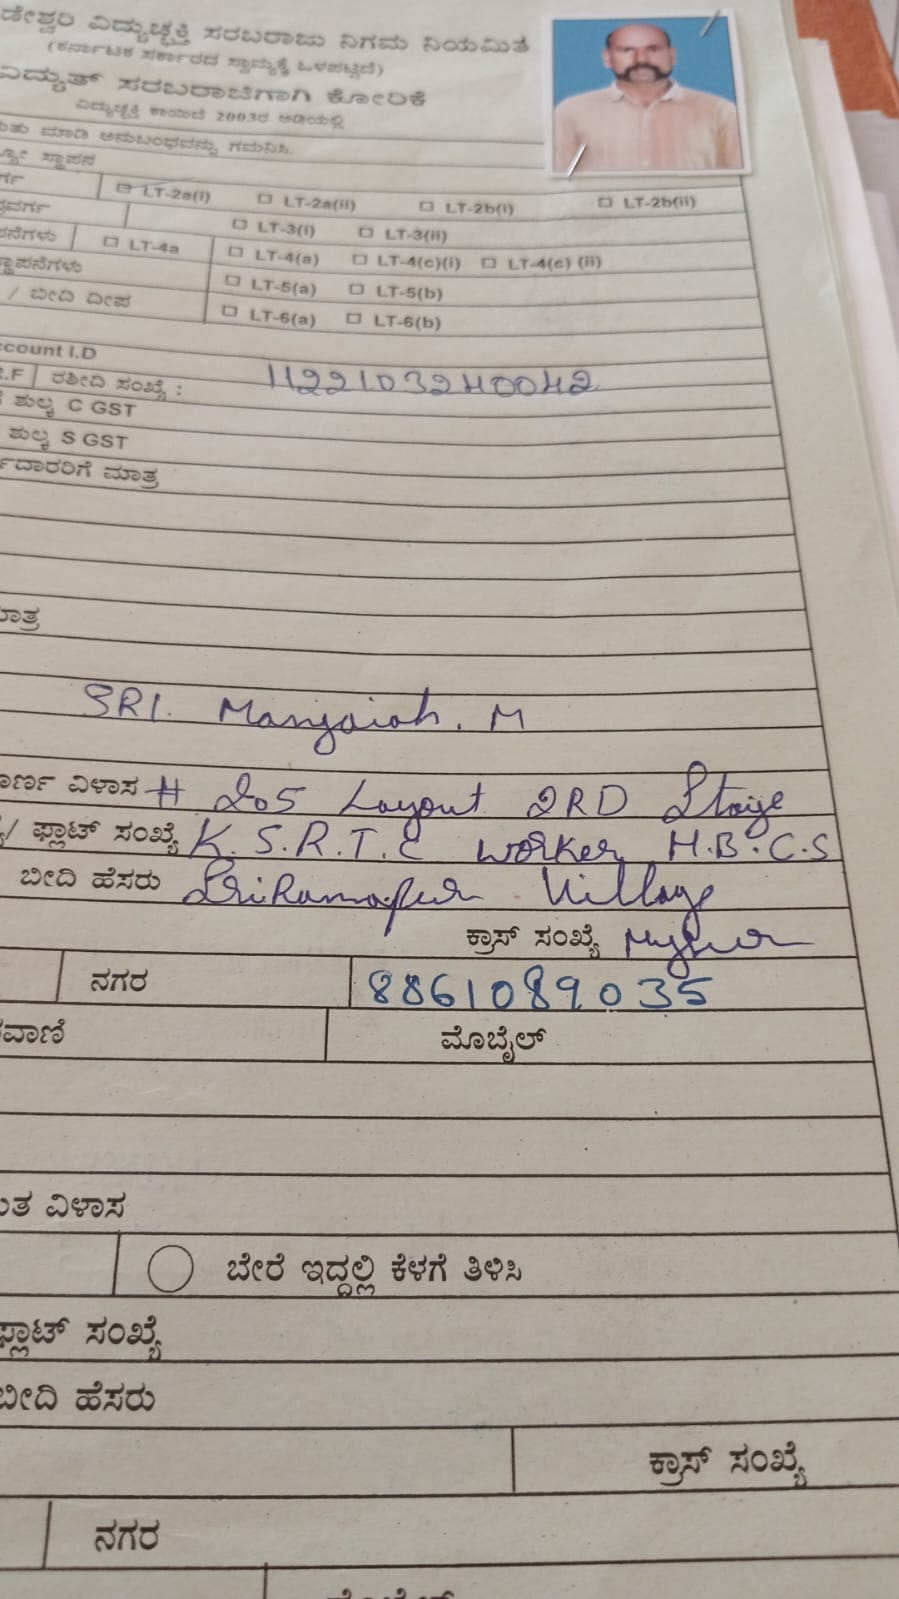 ಡೇಶ್ವರಿ ವಿದ್ಯುಚ್ಛಕ್ತಿ ಸರಬರಾಜು ನಿಗಮ ನಿಯಮಿತ
(ಕರ್ನಾಟಕ ಸರ್ಕಾರದ ಸ್ವಾಮ್ಯಕ್ಕೆ ಒಳಪಟ್ಟಿದೆ)
ವಿದ್ಯುತ್ ಸರಬರಾಜಿಗಾಗಿ ಕೋರಿಕೆ
ವಿದ್ಯುಚ್ಛಕ್ತಿ ಕಾಯಿದೆ 2003ರ ಅಡಿಯಲ್ಲಿ
ಮಾಡಿ ಅನುಬಂಧವನ್ನು ಗಮನಿಸಿ.
ಸ್ಥಾಪನ
ರ್ಗ LT-2a(i) LT-2a(ii) LT-2b(i) LT-2b(ii)
ವರ್ಗ LT-3(i) LT-3(ii)
ಪನೆಗಳು LT-4a LT-4(a) LT-4(c)(i) LT-4(c) (ii)
ಸ್ಥಾಪನೆಗಳು LT-5(a) LT-5(b)
/ ಬೀದಿ ದೀಪ LT-6(a) LT-6(b)
ccount I.D
.F ರಶೀದಿ ಸಂಖ್ಯೆ : 1122103240042
ಶುಲ್ಕ C GST
ಶುಲ್ಕ S GST
ದಾರರಿಗೆ ಮಾತ್ರ
ಮಾತ್ರ
SRI. Manjaiah. M
ೂರ್ಣ ವಿಳಾಸ # 205 Layout 2RD Stage
/ ಫ್ಲಾಟ್ ಸಂಖ್ಯೆ K.S.R.T.C worker H.B.C.S
ಬೀದಿ ಹೆಸರು Srirampur Village
ಕ್ರಾಸ್ ಸಂಖ್ಯೆ Mysur
ನಗರ 8861089035
ರವಾಣಿ ಮೊಬೈಲ್
ತ ವಿಳಾಸ
ಬೇರೆ ಇದ್ದಲ್ಲಿ ಕೆಳಗೆ ತಿಳಿಸಿ
ಫ್ಲಾಟ್ ಸಂಖ್ಯೆ
ಬೀದಿ ಹೆಸರು
ಕ್ರಾಸ್ ಸಂಖ್ಯೆ
ನಗರ